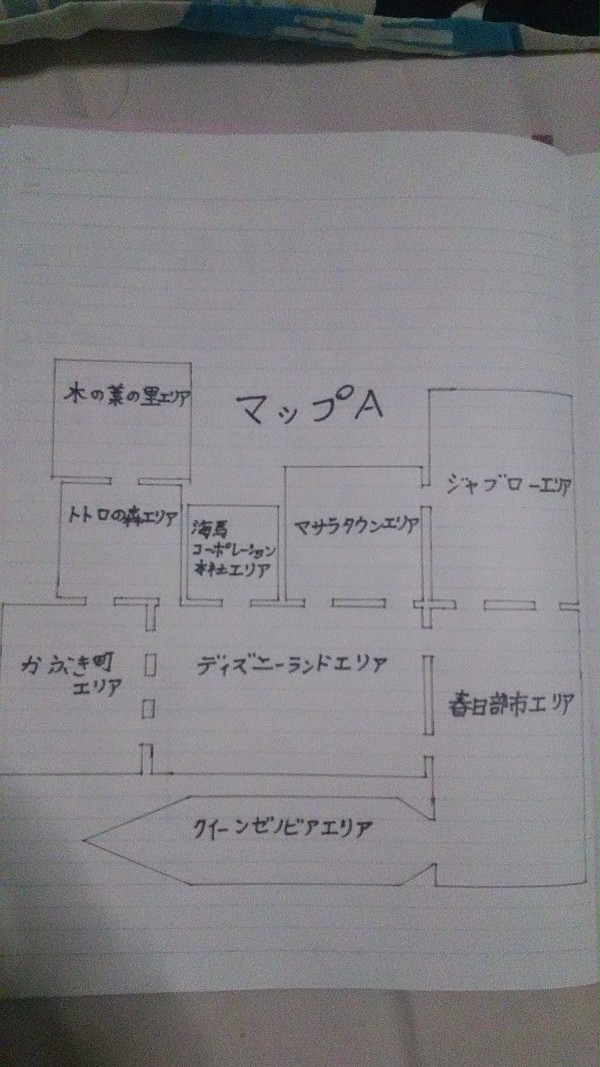 木の葉の里エリア
マップA
ジャブローエリア
トトロの森エリア
海馬
コーポレーション
本社エリア
マサラタウンエリア
かぶき町
エリア
ディズニーランドエリア
春日部市エリア
クイーンゼノビアエリア